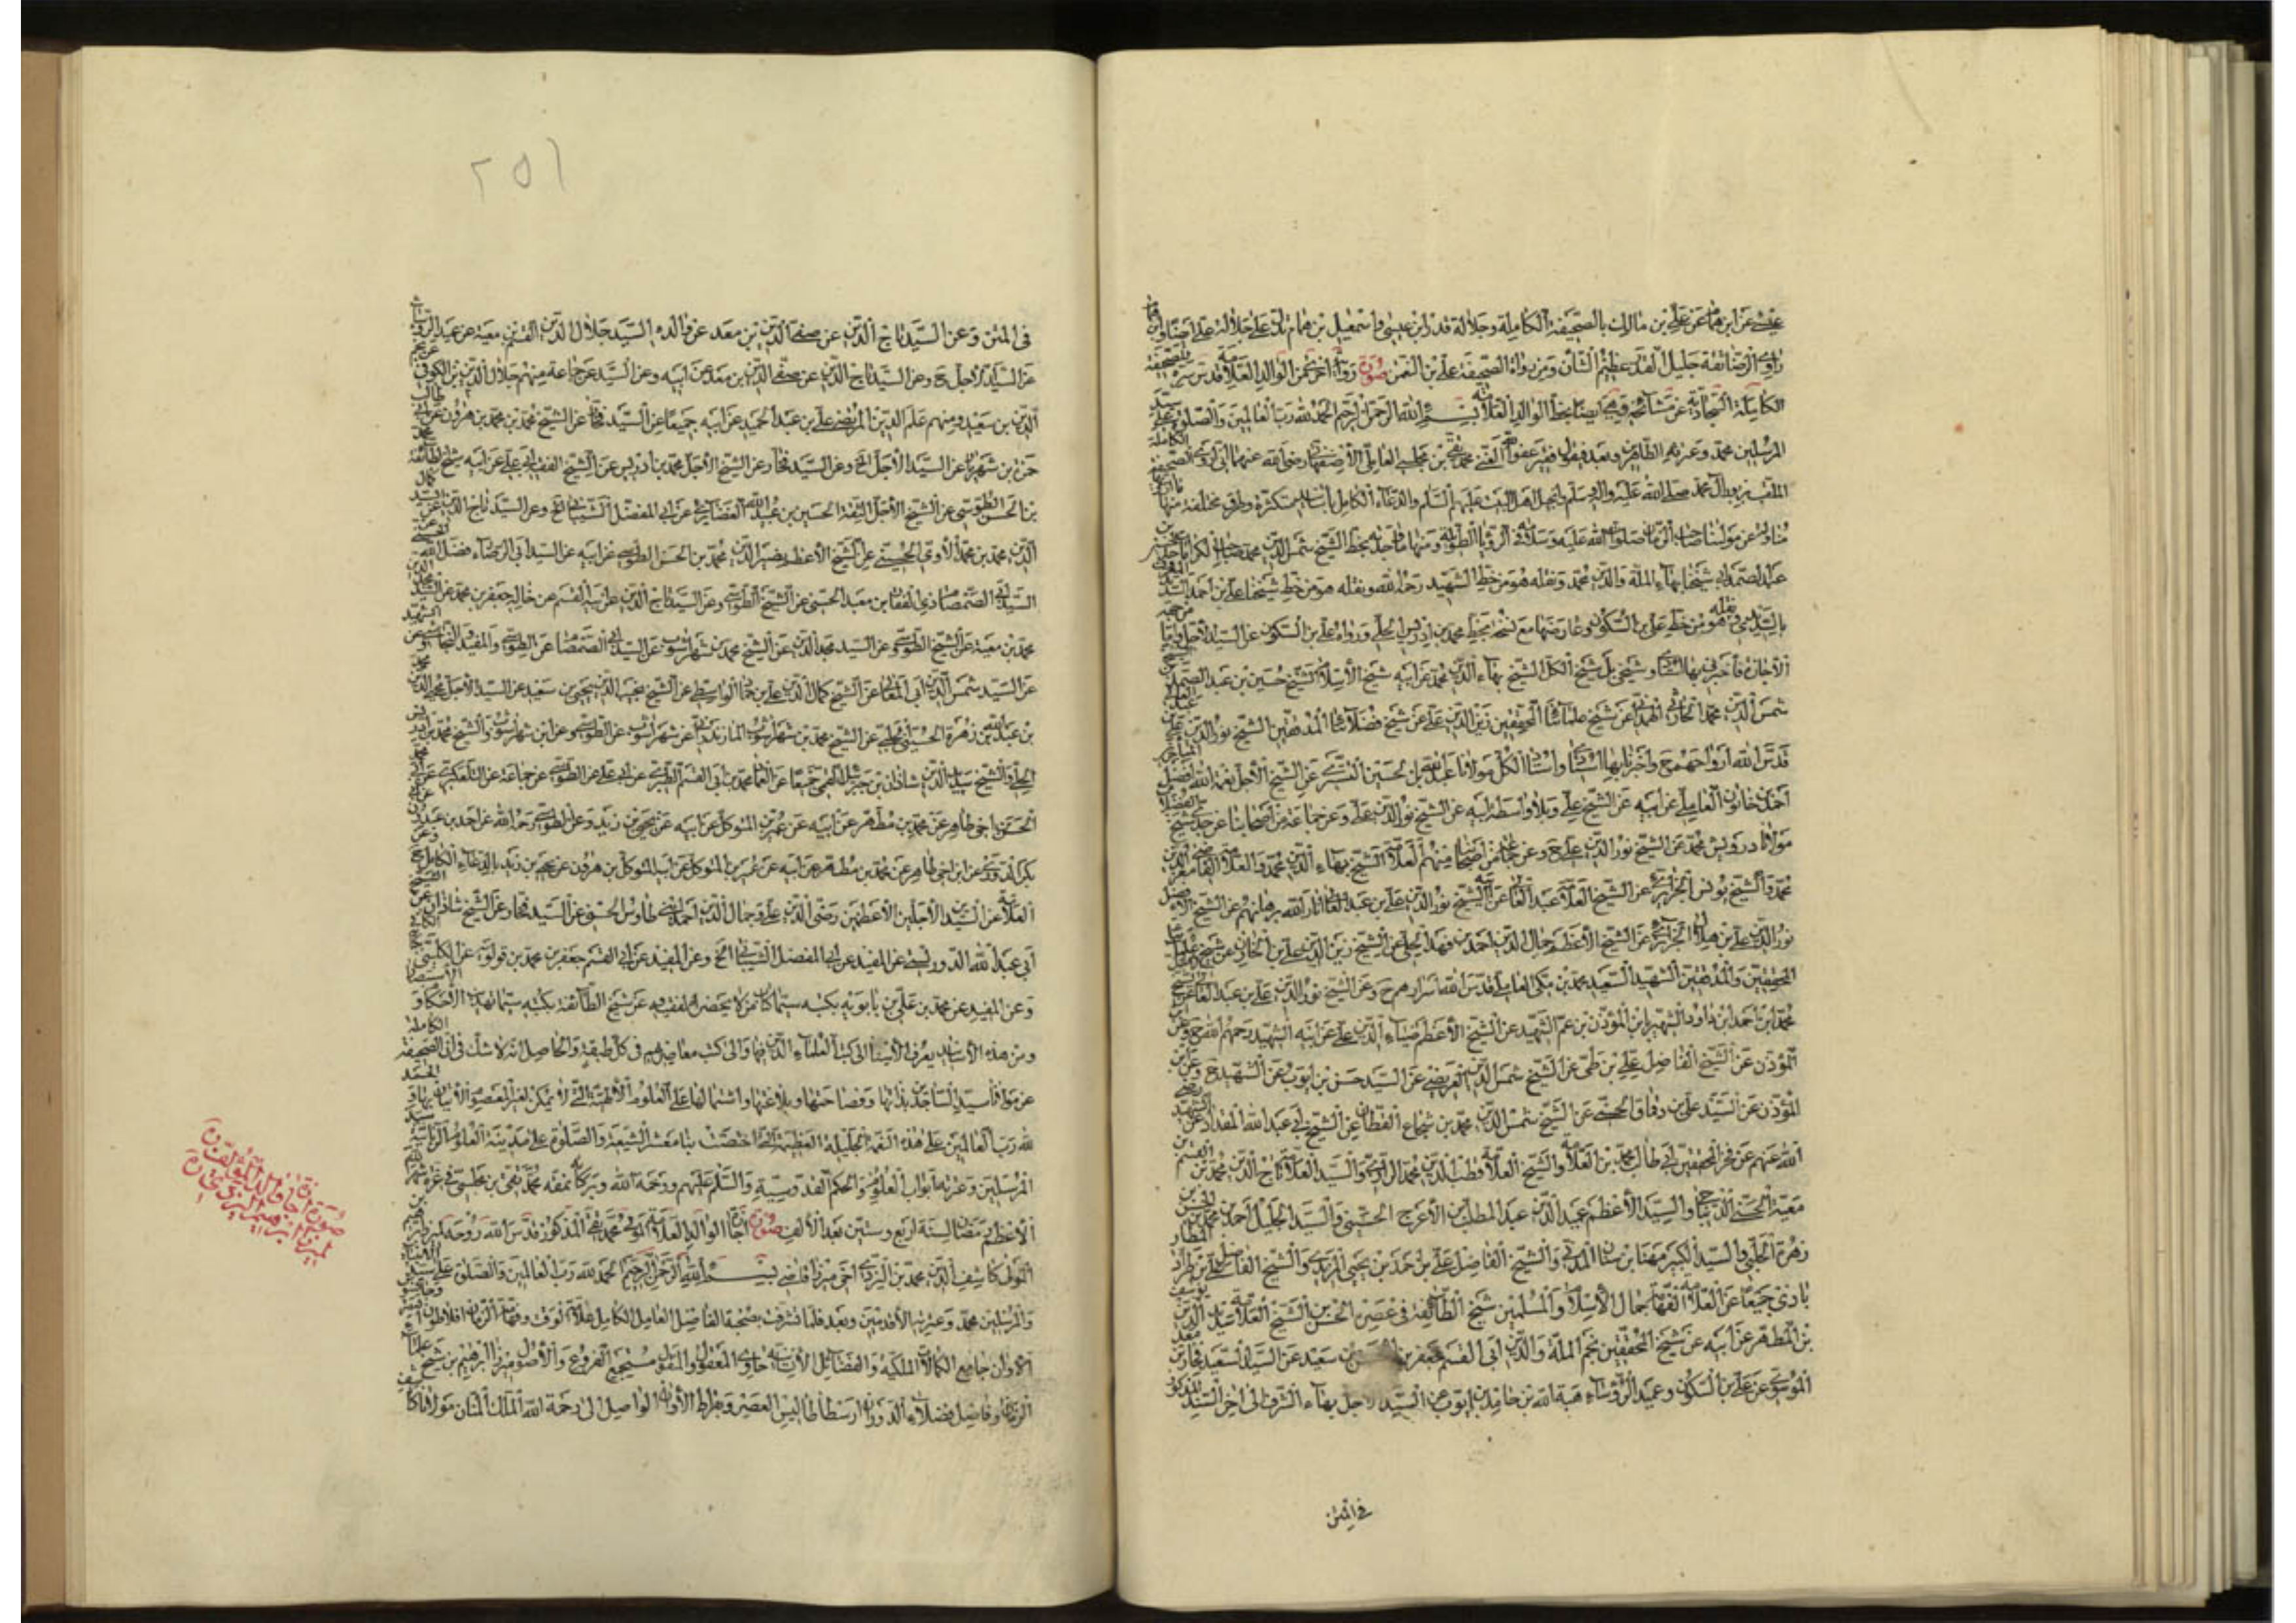 عن ابن همام عن علي بن مالك بالصحيفة الكاملة وجلالة قدر ابن عيسى واسمعيل بن همام تدل على جلالة
راوي الرضا ثقة جليل القدر عظيم الشأن ومن رواة الصحيفة علي بن النعمن صورة رواية اخرى من الوالد العلامة قدس سره للصحيفة
الكاملة السجادية عن مشايخه وهي ايضا بخط الوالد العلامة بسم الله الرحمن الرحيم الحمد لله رب العالمين والصلوة على سيد
المرسلين محمد وعترته الطاهرين وبعد فيقول فقير عفو الله الغني محمد تقي بن مجلسي العاملي الاصفهاني رضي الله عنهما اني اروي الصحيفة الكاملة
الملقب بزبور آل محمد صلى الله عليه واله وسلم وانجيل اهل البيت عليهم السلم والدعاء الكامل باسانيد متكثرة وطرق مختلفة منها
مناولة عن مولينا صاحب الزمان صلوات الله عليه وسلامه في الرؤيا الطويلة ومنها ما وجدته بخط الشيخ شمس الدين محمد صاحب الكرامات جد
عبد الصمد ابي شيخنا بهاء الملة والدين محمد ونقله هو من خط الشهيد رحمه الله ونقله هو من خط شيخنا علي بن احمد
بالسديدي ونقله هو من خط علي بن السكون وعارضها مع نسخة بخط محمد بن ادريس الحلي ورواه علي بن السكون عن السيد الاجل واما
الاجازة فاخبرني بها شيخي بل شيخ الكل الشيخ بهاء الدين محمد عن ابيه شيخ الاسلام الشيخ حسين بن عبد الصمد
شمس الدين محمد الحارثي الهمداني عن شيخ علمائنا المحققين زين الدين علي عن شيخ فضلائنا المدققين الشيخ نور الدين علي
قدس الله ارواحهم ح واخبرنا بها استاذي واستاذ الكل مولانا عبد الله بن الحسين التستري عن الشيخ الاجل نعمة الله
احمد بن خاتون العاملي عن ابيه عن الشيخ علي وبلا واسطة ابيه عن الشيخ نور الدين علي وعن جماعة من اصحابنا عن جدي
مولانا درويش محمد عن الشيخ نور الدين علي ح وعن جماعة من اصحابنا منهم العلامة الشيخ بهاء الدين محمد والعلامة القاضي معز الدين
محمد والشيخ يونس الجزايري عن الشيخ العلامة عبد العالي عن ابيه الشيخ نور الدين علي بن عبد العالي انار الله برهانهم عن الشيخ
نور الدين علي بن هلال الجزايري عن الشيخ الاعظم جمال الدين احمد بن فهد الحلي عن الشيخ زين الدين علي بن الخازن عن شيخ علماء
المحققين والمدققين الشهيد السعيد محمد بن مكي العاملي قدس الله اسرارهم ح وعن الشيخ نور الدين علي بن عبد العالي عن الشيخ
محمد بن احمد ابن داود الشهير بابن المؤذن بن عم الشهيد عن الشيخ الاعظم ضياء الدين علي عن ابيه الشهيد رحمهم الله ح وعن
المؤذن عن الشيخ الفاضل علي بن طي عن الشيخ شمس الدين العريضي عن السيد حسن بن ايوب عن الشهيد ح وعن ابن
المؤذن عن السيد علي بن دقماق الحسني عن الشيخ شمس الدين محمد بن شجاع القطان عن الشيخ ابي عبد الله المقداد عن الشهيد رضي
الله عنهم عن فخر المحققين ابي طالب محمد بن العلامة والشيخ العلامة قطب الدين محمد الرازي والسيد العلامة تاج الدين محمد بن القسم بن
معية الحسني الديباجي والسيد الاعظم عميد الدين عبد المطلب بن الاعرج الحسيني والسيد الجليل احمد بن محمد بن
زهرة الحلبي والسيد الكبير مهنا بن سنان المدني والشيخ الفاضل علي بن احمد بن يحيى المزيدي والشيخ الفاضل علي بن طراد المطار
بادي جميعا عن العلامة الفهامة جمال الاسلام والمسلمين شيخ الطائفة في عصره الحسن بن الشيخ العلامة سديد الدين يوسف
بن المطهر عن ابيه عن شيخ المحققين نجم الملة والدين ابي القسم جعفر بن سعيد عن السيد السعيد فخار بن معد
الموسوي عن علي بن السكون وعميد الرؤساء هبة الله بن حامد بن ايوب عن السيد الاجل بهاء الشرف الى اخر السند المذكور
في المتن
٢٥١
في المتن وعن السيد تاج الدين عن صفي الدين بن معد عن والده السيد جلال الدين القسم بن معية عن عميد الرؤساء
عن السيد الاجل ح وعن السيد تاج الدين عن صفي الدين بن معد عن ابيه وعن السيد عن جماعة منهم جلال الدين بن الكوفي عن نجم
الدين بن سعيد ومنهم علم الدين المرتضى علي بن عبد الحميد عن ابيه جميعا عن السيد فخار عن الشيخ محمد بن محمد بن هرون عن ابي طالب
حمزة بن شهريار عن السيد الاجل الخ وعن السيد فخار عن الشيخ الاجل محمد بن ادريس عن الشيخ الفقيه ابي علي عن ابيه شيخ الطائفة محمد
بن الحسن الطوسي عن الشيخ الاجل الثقة الحسين بن عبيد الله الغضايري عن ابي المفضل الشيباني الخ وعن السيد تاج الدين عن السيد كمال
الدين محمد بن محمد الآوي الحسيني عن الشيخ الاعظم نصير الدين محمد بن الحسن الطوسي عن ابيه عن السيد ابي الرضاء فضل الله الحسني عن
السيد ابي الصمصام ذي الفقار بن معبد الحسني عن الشيخ الطوسي وعن السيد تاج الدين عن ابيه القسم عن خاله جعفر بن محمد عن السيد مجد الدين
محمد بن معية عن الشيخ الطوسي وعن السيد مجد الدين عن الشيخ محمد بن شهراشوب عن السيد ابي الصمصام عن الطوسي والمفيد والنجاشي وعن الشهيد
عن السيد شمس الدين ابي المعالي عن الشيخ كمال الدين علي بن حماد الواسطي عن الشيخ نجيب الدين يحيى بن سعيد عن السيد الاجل محيي الدين محمد
بن عبد الله بن زهرة الحسيني الحلبي عن الشيخ محمد بن شهراشوب المازندراني عن شهراشوب عن الطوسي وعن ابن شهراشوب والشيخ محمد بن ادريس
الحلي والشيخ سديد الدين شاذان بن جبرئيل القمي جميعا عن العماد محمد بن ابي القسم الطبري عن ابي علي عن الطوسي عن جماعة عن التلعكبري عن ابي محمد
الحسن بن اخي طاهر عن محمد بن مطهر عن ابيه عن عمير بن المتوكل عن ابيه عن يحيى بن زيد وعن الطوسي رحمه الله عن احمد بن عبدون عن ابي
بكر الدوري عن ابن اخي طاهر عن محمد بن مطهر عن ابيه عن عمير بن المتوكل عن ابيه المتوكل بن هرون عن يحيى بن زيد بالدعاء الكامل ح وعن
العلامة عن السيدين الاجلين الاعظمين رضي الدين علي وجمال الدين احمد ابني طاوس الحسني عن السيد فخار عن الشيخ شاذان عن الشيخ
ابي عبد الله الدوريستي عن المفيد عن ابي المفضل الشيباني الخ وعن المفيد عن ابي القسم جعفر بن محمد بن قولويه عن الكليني بكتبه
وعن المفيد عن محمد بن علي بن بابويه بكتبه سيما كتاب من لا يحضره الفقيه وعن شيخ الطائفة بكتبه سيما تهذيب الاحكام والاستبصار
ومن هذه الاسانيد يعرف الاسناد الى كتب العلماء الذين فيها والى كتب معاصريهم في كل طبقة والحاصل انه لا شك في ان الصحيفة الكاملة
عن مولانا سيد الساجدين بذاتها وفصاحتها وبلاغتها واشتمالها على العلوم الالهية التي لا يمكن لغير المعصوم الاتيان بها والحمد
لله رب العالمين على هذه النعمة الجليلة العظيمة التي اختصت بنا معشر الشيعة والصلوة على مدينة العلوم الربانية سيد
المرسلين وعترته ابواب العلوم والحكم القدوسية والسلم عليهم ورحمة الله وبركاته نمقه محمد تقي بن مجلسي في غرة شهر الله
الاعظم رمضان لسنة اربع وستين بعد الالف صورة اجازة الوالد العلامة المولى محمد تقي المذكور قدس الله روحه لميرزا ابرهيم بن
المولى كاشف الدين محمد بن اليزدي اخي ميرزا قاضي بسم الله الرحمن الرحيم الحمد لله رب العالمين والصلوة على سيد الانبياء
والمرسلين محمد وعترته الاقدسين وبعد فلما تشرفت بصحبة الفاضل العامل الكامل علامة الوقت وفهامة الزمان افلاطون
الاوان جامع الكمالات الملكية والفضائل الانسانية حاوي المعقول والمنقول مستجمع الفروع والاصول ميرزا ابرهيم بن شيخ علماء
الزمان وفاضل فضلاء الدوران ارسطاطاليس العصر وبقراط الاوان الواصل الى رحمة الله الملك المنان مولانا كاشف
صورة اجازة والد المؤلف
لميرزا ابرهيم اليزدي